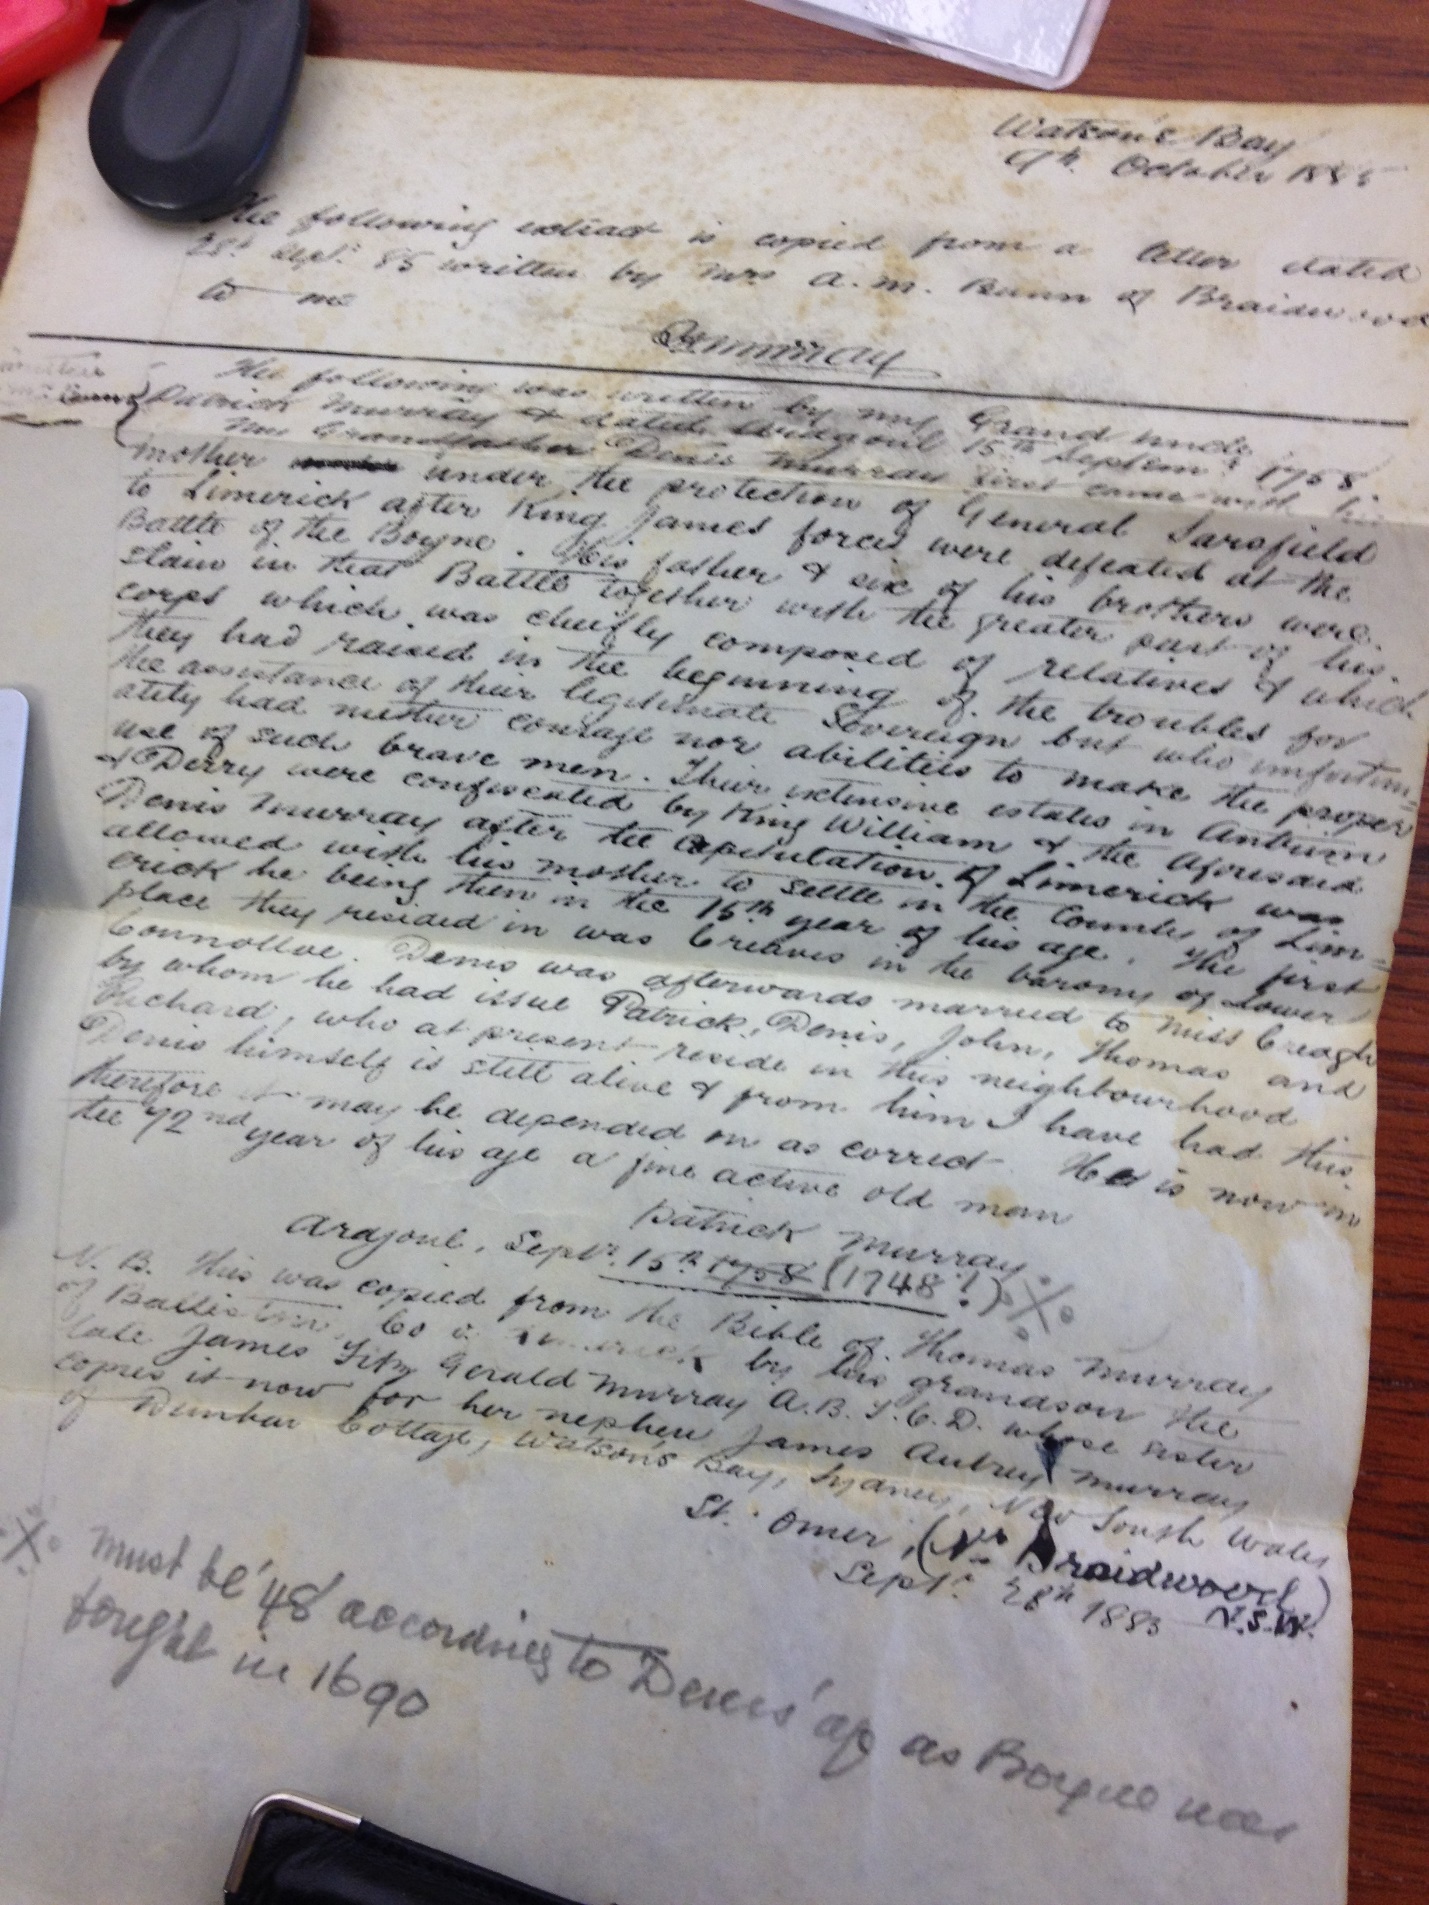 Watson's Bay
9th. October 1885
The following extract is copied from a letter dated
28th Sept. 85 written by Mrs A. M. Bunn of Braidwood
to me
The following was written by my Grand uncle
Patrick Murray & dated Ardgoul 15th Septemr. 1758.
My Grandfather Denis Murray first came with his
mother under the protection of General Sarsfield
to Limerick after King James forces were defeated at the
Battle of the Boyne. His father & six of his brothers were
slain in that Battle together with the greater part of his
corps which was cheifly composed of relatives & which
they had raised in the beginning of the troubles for
the assistance of their legitimate Sovereign but who unfortun=
ately had neither courage nor abilities to make the proper
use of such brave men. Their extensive estates in Antrim
& Derry were confiscated by King William & the aforesaid
Denis Murray after the capitulation of Limerick was
allowed with his mother to settle in the County of Lim=
erick he being then in the 15th year of his age. The first
place they resided in was Creaves in the barony of Lower
Connolloe. Denis was afterwards married to Miss Creagh
by whom he had issue Patrick, Denis, John, Thomas and
Richard, who at present reside in this neighbourhood
Denis himself is still alive & from him I have had this
therefore it may be depended on as correct. He is now in
the 72nd year of his age a fine active old man
Patrick Murray.
Ardgoul, Septr. 15th 1758 (1748!)
N. B. This was copied from the Bible of Thomas Murray
of Co Limerick by his grandson the
late James Fitz Gerald Murray A.B. T.C.D. whose sister
copies it now for her nephew James Aubrey Murray
of Dunbar Cottage, Watson's Bay, Sydney, New South Wales
St. Omer, (Nr Braidwood)
Septr. 28th 1885 N.S.W.
X must be '48 according to Denis' age as Boyne was
fought in 1690